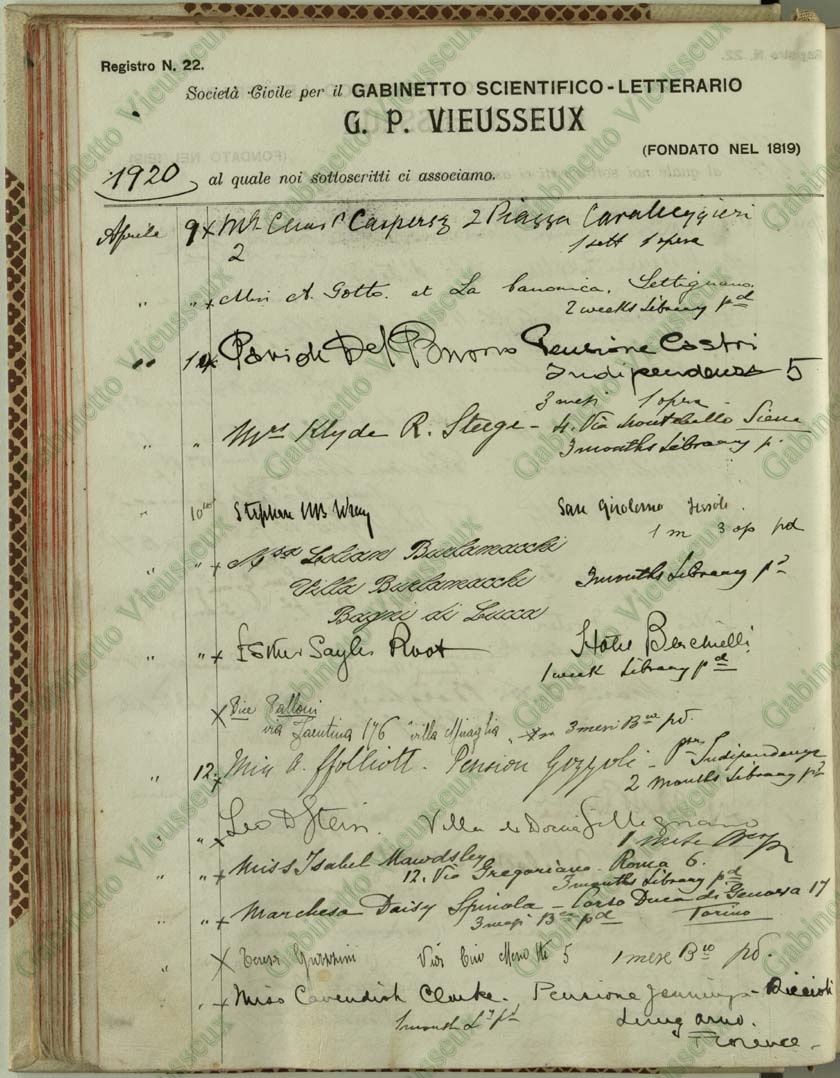 Registro N. 22.
Società Civile per il GABINETTO SCIENTIFICO-LETTERARIO
G. P. VIEUSSEUX
(FONDATO NEL 1819)
1920 al quale noi sottoscritti ci associamo.
Aprile 9 x Caspersz 2 Piazza Cavalleggieri
2 1 sett 1 opera
" " x Miss A. Gotto. at La Canonica. Settignano.
2 weeks Library pd
" x Pensione Castri
Indipendenza 5
3 mesi 1 opera
" " Mrs Klyde R. Steege - 4. Via Siena
3 months Library p.
" 10 Stephen San Girolamo Fiesole.
1 m 3 op pd
" " x Lilian Burlamacchi
Villa Burlamacchi 3 months Library pd
Bagni di Lucca
" " x Esther Sayles Root Hotel Berchielli
1 week Library pd
x
via Faentina 176 villa 3 mesi pd.
" 12. x Miss A. ffolliott. Pension Gozzoli - Indipendenza
2 months Library pd
" x Leo D Stein. Villa di Doccia Settignano
1 mese
" " x Miss Isabel Mawdsley
12, Via Gregoriana - Roma 6.
3 months Library pd
" " x Marchesa Daisy Spinola - Corso Duca di Genova 17
3 mesi pd Torino
" x Teresa Via Ciro Menotti 5 1 mese pd.
" x Miss Cavendish Clarke. Pensione Jennings-Riccioli
1 month pd Lung'arno.
Florence.
Gabinetto Vieusseux